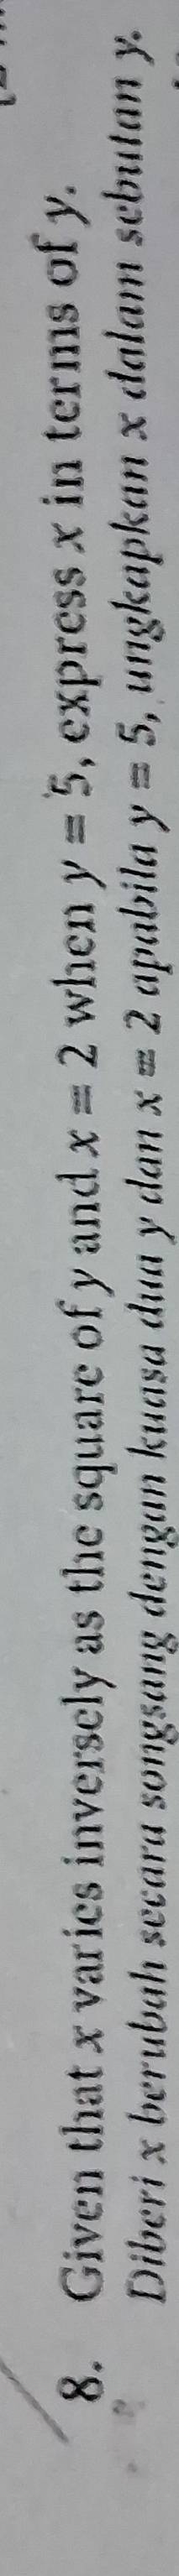 8. Given that x varies inversely as the square of y and x = 2 when y = 5, express x in terms of y.
Diberi x berubah secara songsang dengan kuasa dua y dan x = 2 apabila y = 5, ungkapkan x dalam sebutan y.